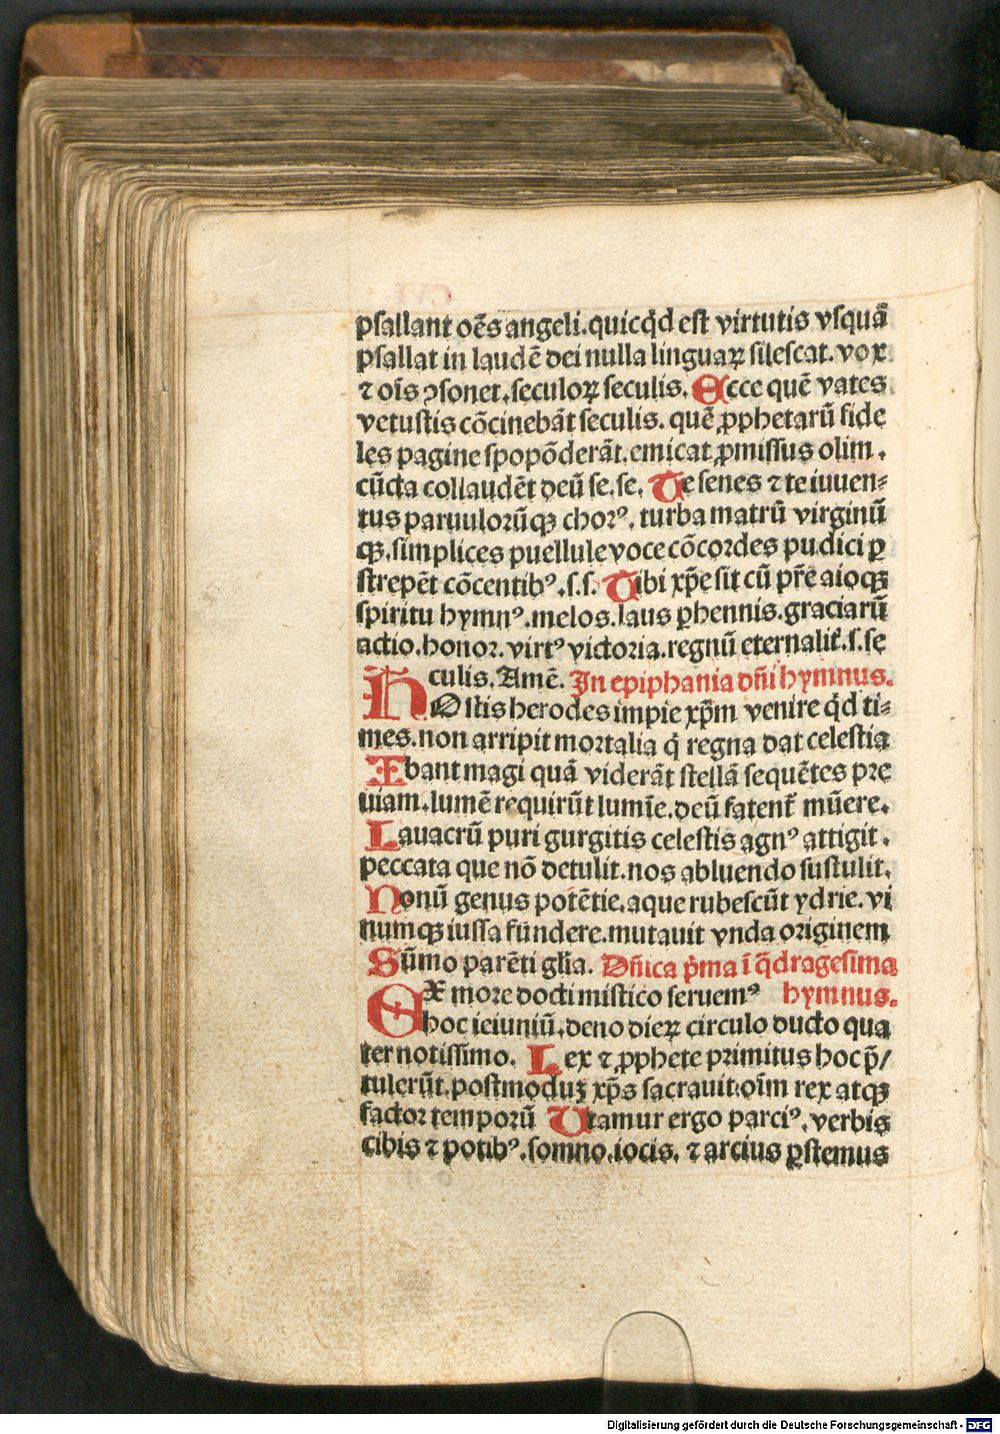 psallant oẽs angeli.quicq̇d est virtutis vsquã
psallat in laudẽ dei nulla linguaꝝ silescat.vox
⁊ oĩs ↄsonet.seculoꝝ seculis. Ecce quẽ vates
vetustis cõcinebãt seculis. quẽ ꝓphetarũ fide
les pagine spopõderãt.emicat ꝓmissus olim.
cũcta collaudẽt deũ se.se. Te senes ⁊ te iuuen⸗
tus paruulorũqꝫ chorꝰ. turba matrũ virginũ
qꝫ.simplices puellule voce cõcordes pudici ꝑ
strepẽt cõcentibꝰ.s.s. Tibi xp̃e sit cũ pr̃e aioqꝫ
spiritu hymnꝰ.melos.laus ꝑhennis.graciarũ
actio.honor.virtꝰ victoria.regnũ eternalit̃.s.se
culis.Amẽ. In epiphania dñi hymnus.
HOstis herodes impie xp̃m venire q̇d ti⸗
mes.non arripit mortalia q̇ regna dat celestia
Ibant magi quã viderãt stellã sequẽtes pre
uiam.lumẽ requirũt lumĩe.deũ fatent̃ mũere.
Lauacrũ puri gurgitis celestis agnꝰ attigit.
peccata que nõ detulit.nos abluendo sustulit.
Nonũ genus potẽtie.aque rubescũt ydrie.vi
numqꝫ iussa fundere.mutauit vnda originem
Sũmo parẽti glĩa. Dñica p̃ma ĩ q̃dragesima
EX more docti mistico seruemꝰ hymnus.
hoc ieiuniũ.deno dieꝝ circulo ducto qua
ter notissimo. Lex ⁊ ꝓphete primitus hoc p̃/
tulerũt.postmoduꝫ xp̃s sacrauit.oĩm rex atqꝫ
factor temporũ Utamur ergo parciꝰ.verbis
cibis ⁊ potibꝰ.somno.iocis. ⁊ arcius ꝑstemus
Digitalisierung gefördert durch die Deutsche Forschungsgemeinschaft - DFG